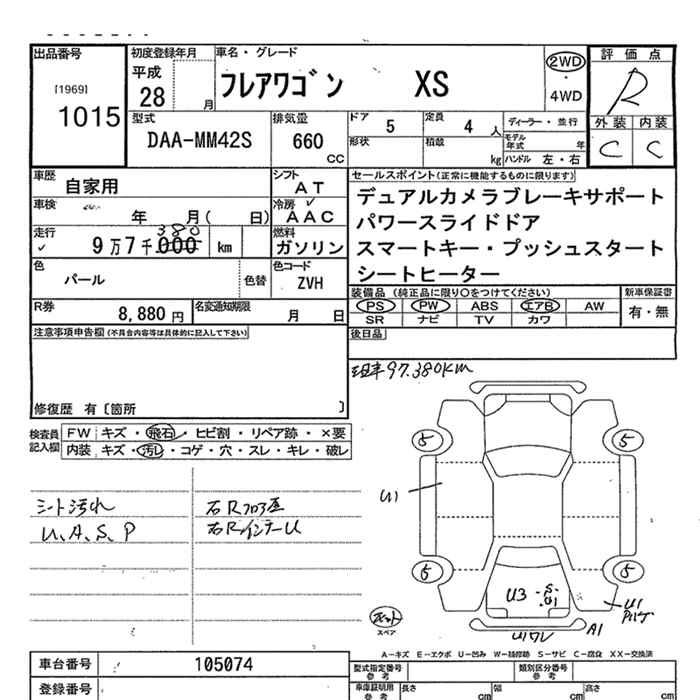 出品番号
[1969]
1015
初度登録年月
平成
28 月
車名・グレード
フレアワゴン XS
2WD
・
4WD
評価点
R
外装 内装
C C
型式
DAA-MM42S
排気量
660
CC
ドア 5
定員 4 人
形状
積載 kg
ディーラー・並行
モデル年式 年
ハンドル 左・右
車歴 自家用
車検 年 月( 日)
走行 9万7千000 380 km
色 パール
色替
R券 8,880 円
シフト AT
冷房 AAC
燃料 ガソリン
色コード ZVH
名変通知期限 月 日
セールスポイント(正常に機能するものに限ります)
デュアルカメラブレーキサポート
パワースライドドア
スマートキー・プッシュスタート
シートヒーター
装備品 (純正品に限り○をつけてください)
PS PW ABS エアB AW
SR ナビ TV カワ
新車保証書
有・無
後日品
注意事項申告欄(不具合内容等は具体的に記入して下さい)
修復歴 有〔箇所 〕
現車97.380KM
検査員記入欄
FW キズ・飛石・ヒビ割・リペア跡・×要
内装 キズ・汚レ・コゲ・穴・スレ・キレ・破レ
シート汚れ
U、A、S、P
右Rフロア歪
右RインナーU
5 5
U1
5 5
U3 ・S
・U1
U1
U1ワレ A1
スペア
A-キズ E-エクボ U-凹み W-補修跡 S-サビ C-腐食 XX-交換済
車台番号 105074
登録番号
型式指定番号 参考
類別区分番号 参考
車庫証明用 参考
長さ cm
幅 cm
高さ cm